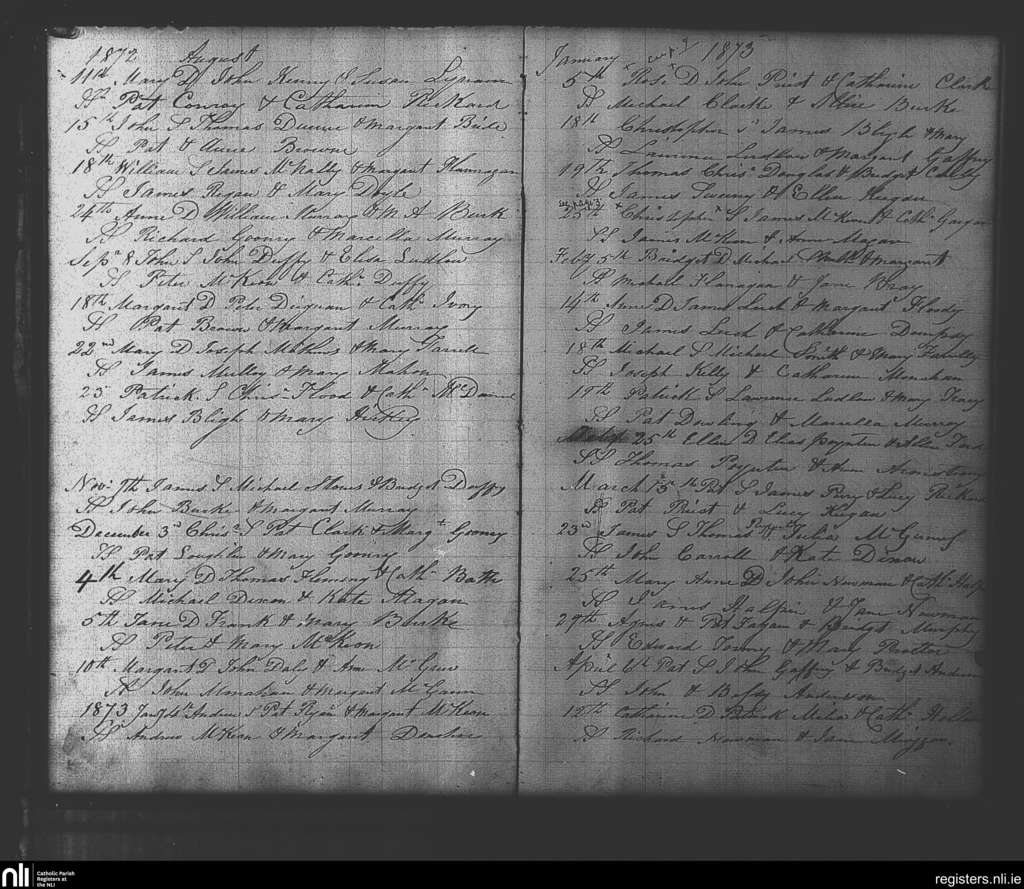 1872 August
11th Mary D John Kenny & Susan
Ss Pat Conroy & Catharine Rickard
15th John S Thomas Dunne & Margaret Bride
Ss Pat & Anne Browne
18th William S James McNally & Margaret Flannagan
Ss James Regan & Mary Doyle
24th Anne D William Murray & M A Burk
Ss Richard Goonry & Marcella Murray
Sepr 8 John S John Duffy & Eliza Ludlow
Ss Peter McKeon & Cath: Duffy
18th Margaret D Peter Dignan & Cath: Ivory
Ss Pat Browne & Margaret Murray
22nd Mary D Joseph Mathews & Mary Farrell
Ss James Mulley & Mary Mahon
25 Patrick S Chris: Flood & Cath:
Ss James Bligh & Mary
Nov: 9th James S Michael & Bridget Duffy
Ss John Burke & Margaret Murray
December 3d Chrisr S Pat Clark & Margt Goonry
Ss Pat Loughlin & Mary Goonry
4th Mary D Thomas Fleming & Cath: Bathe
Ss Michael Dixon & Kate Magan
5th Jane D Frank & Mary Burke
Ss Peter & Mary McKeon
10th Margaret D John Daly & Ann
Ss John Monahan & Margaret McGann
1873 Jany Andrew S Pat Ryan & Margaret McKeon
Ss Andrew McKeon & Margaret
January see p 3 1873
5th Rose D John Priest & Catharine Clark
Ss Michael Clarke & Burke
18th Christopher S James Bligh & Mary
Ss Laurence Ludlow & Margaret Gaffney
19th Thomas Chrisr Douglas & Bridget
Ss James & Ellen Keegan
see page 3
25th Christopher S James McKeon & Cath:
Ss James McKeon & Anne Magan
Feby 5th Bridget D Michael & Margaret
Ss Michael Flanagan & Jane Bray
14th Anne D James & Margaret
Ss James & Catherine Dempsey
18th Michael S Michael Smith & Mary
Ss Joseph Kelly & Catharine Monahan
19th Patrick S Laurence Ludlow & Mary
Ss Pat Dowling & Marcella Murray
25th Ellen D Elias Poynten & Ellen
Ss Thomas Poynten & Ann Armstrong
March 15th Pat S James & Lucy Rickard
Ss Pat Priest & Lucy Keegan
23rd James S Thomas & Julia
Ss John Carroll & Kate Dixon
25th Mary Anne D John Newman & Cath:
Ss James Halpin & Jane Newman
29th Agnes & Pat & Bridget Murphy
Ss Edward & Mary Proctor
April 6th Pat S John Gaffney & Bridget
Ss John & Betsy Anderson
12th Catharine D Patrick & Cath:
Ss Richard Newman & Jane
nli Catholic Parish
Registers at
the NLI
registers.nli.ie